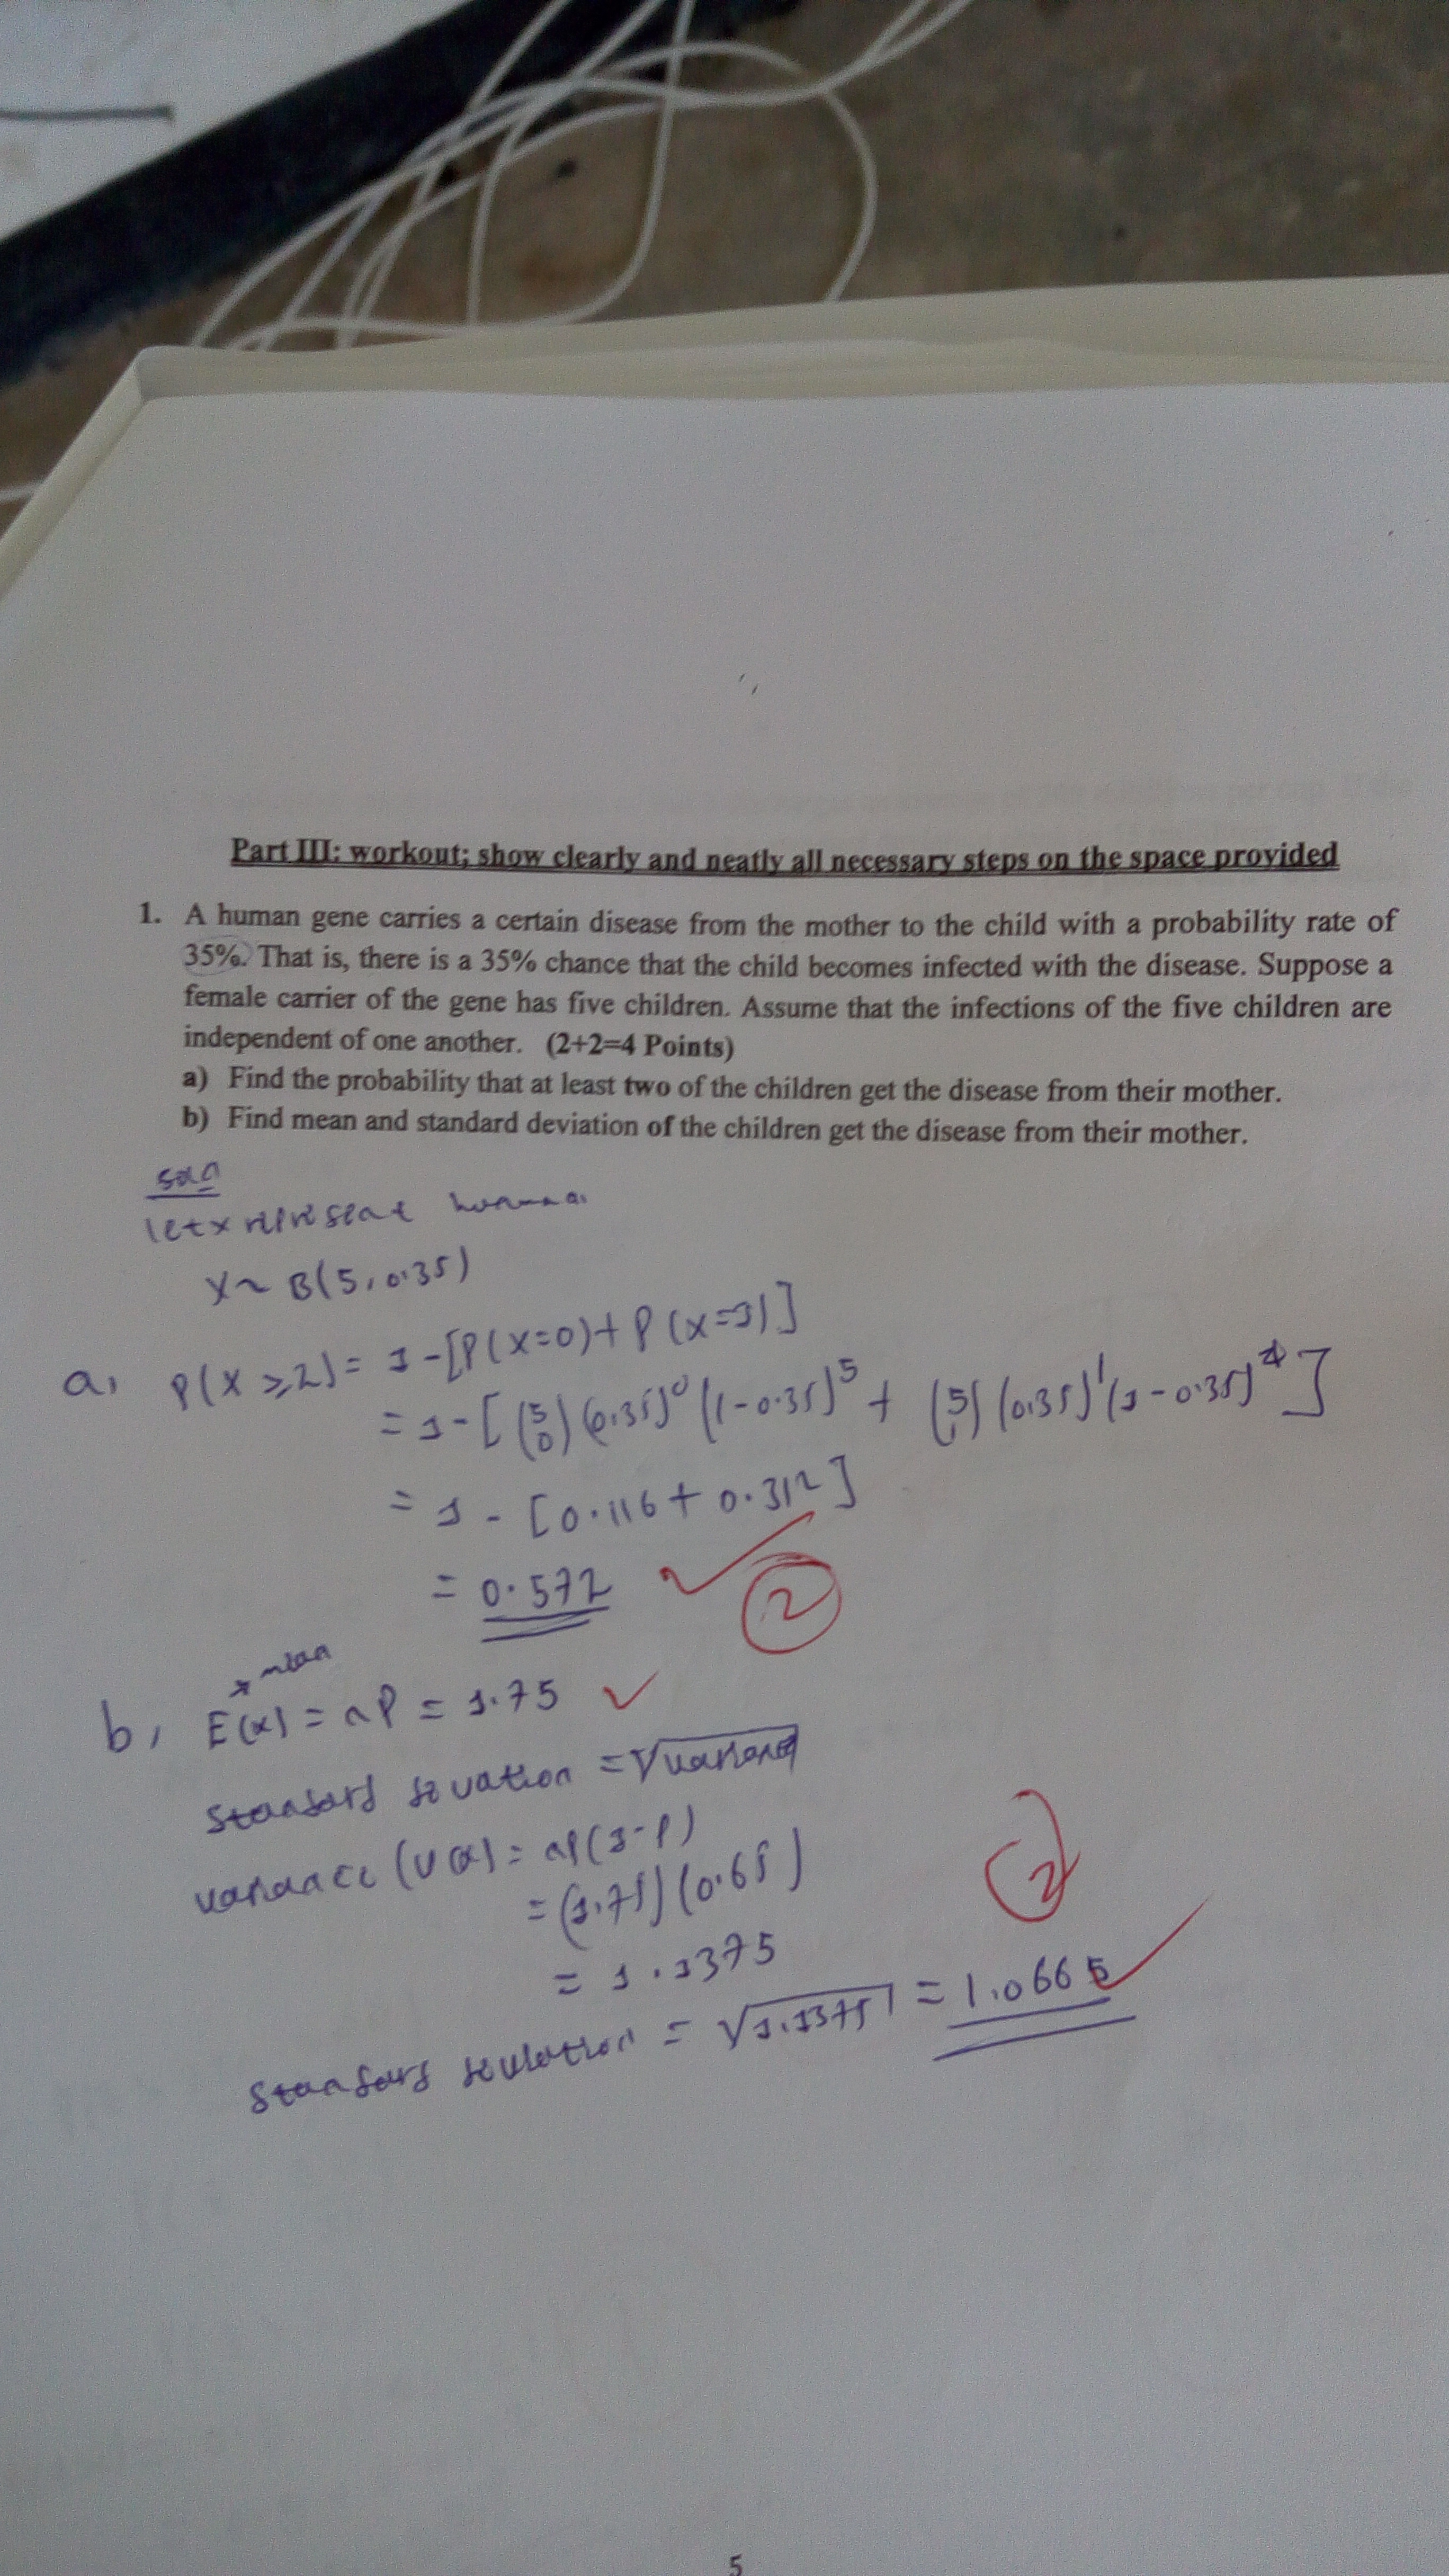 Part III: workout; show clearly and neatly all necessary steps on the space provided
1. A human gene carries a certain disease from the mother to the child with a probability rate of
35%. That is, there is a 35% chance that the child becomes infected with the disease. Suppose a
female carrier of the gene has five children. Assume that the infections of the five children are
independent of one another. (2+2=4 Points)
a) Find the probability that at least two of the children get the disease from their mother.
b) Find mean and standard deviation of the children get the disease from their mother.
let x represent
X ~ B(5, 0.35)
a, P(X ≥ 2) = 1 - [P(X=0) + P(X=1)]
= 1 - [(5 0) (0.35)^0 (1-0.35)^5 + (5 1) (0.35)^1 (1-0.35)^4]
= 1 - [0.116 + 0.312]
= 0.572 ✓
2
mean
b, E(x) = nP = 1.75 ✓
= √variance
variance (V(x)) = nP(1-P)
= (1.75) (0.65)
2
= 1.1375
= √1.1375 = 1.0665 ✓
5